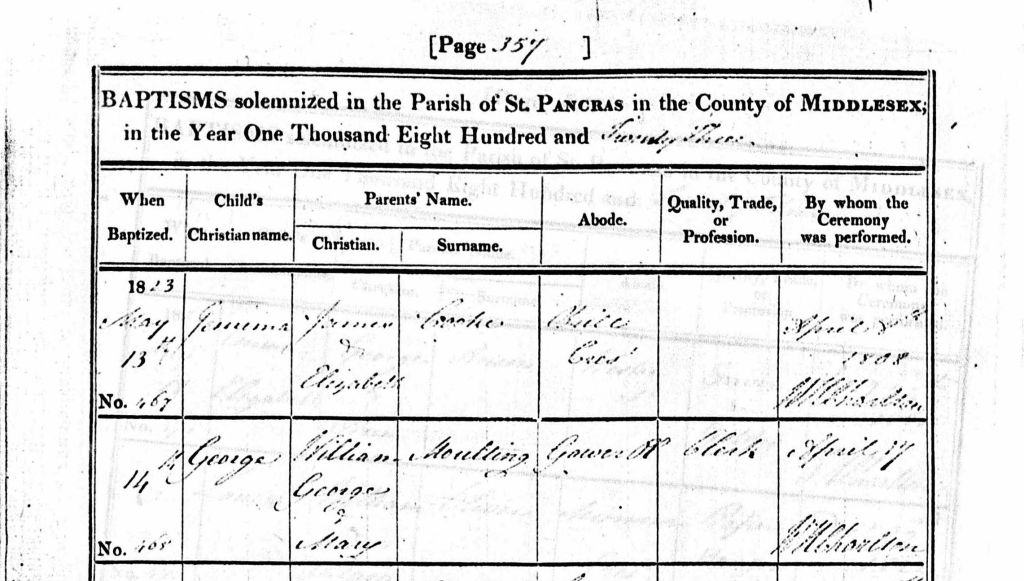 [Page 357 ]
BAPTISMS solemnized in the Parish of St. PANCRAS in the County of MIDDLESEX,
in the Year One Thousand Eight Hundred and Twenty Three
When Baptized.
Child's Christian name.
Parents' Name.
Christian.
Surname.
Abode.
Quality, Trade, or Profession.
By whom the Ceremony was performed.
1823
May 13th
No. 467
Jemima
James & Elizabeth
Cooke
April
1808
W H Charlton
14th
No. 468
George
William George & Mary
Moulting
Gower St
Clerk
April 17
W H Charlton